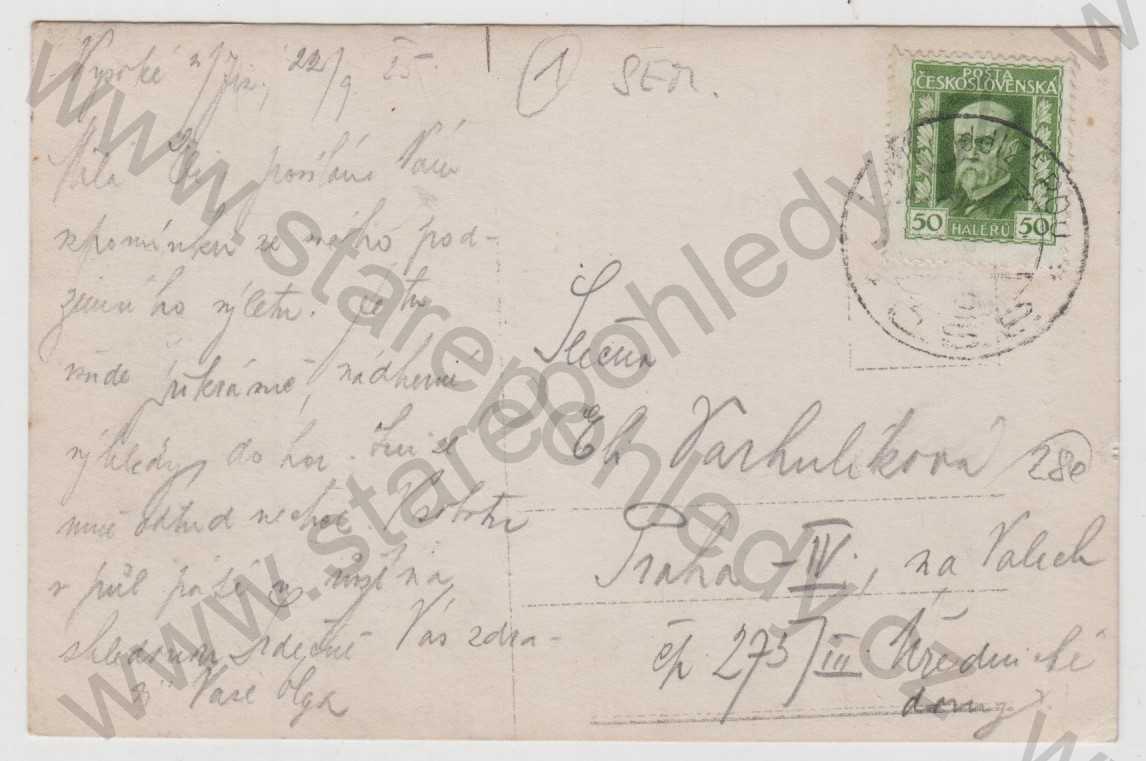 Vysoké n/Jiz. 22/9 25
1
SEM.
POŠTA
ČESKOSLOVENSKÁ
50 HALÉŘŮ 50
Milá posílám Vám
vzpomínku ze svého pod-
zimního výletu. Je tu
všude překrásně, nádherné
výhledy do hor. se
mně odtud nechce. V sobotu
v půl páté na
shledanou. Srdečně Vás zdra-
ví Vaše Olga
Slečna
Varhulíková
280
Praha - IV., na Valech
čp. 275/III Úřednické
domy
www.starepohledy.cz
www.starepohledy.cz